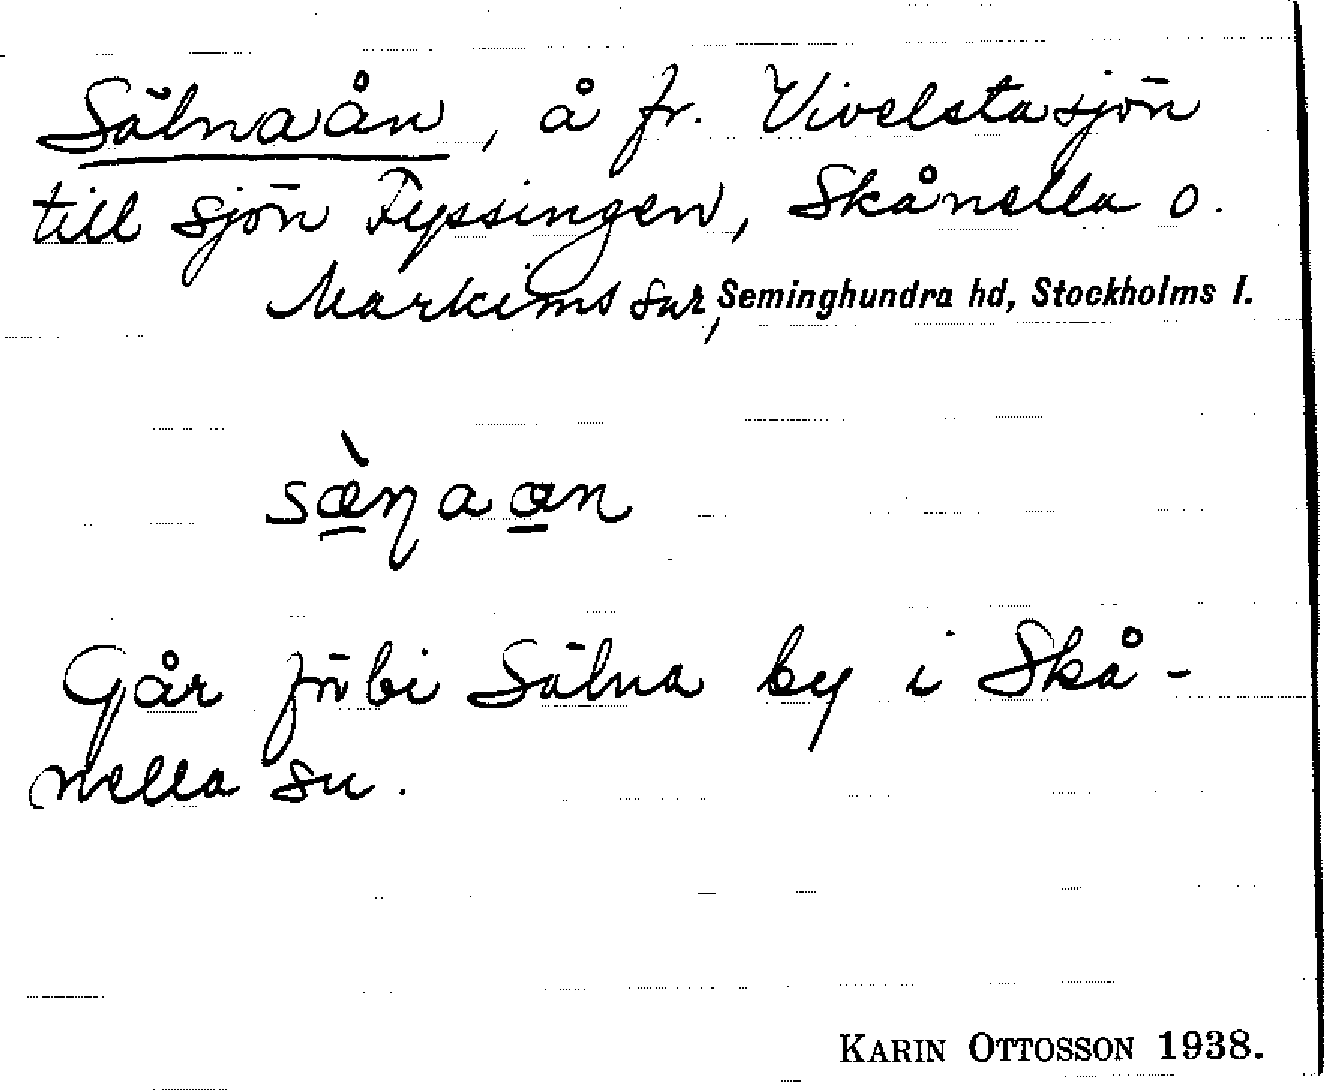 Sälnaån, å fr. Vivelstasjön
till sjön Fyssingen, Skånella o.
Markims snr, Seminghundra hd, Stockholms l.
sæ̀ɳaan
Går förbi Sälna by i Skå-
nella sn.
KARIN OTTOSSON 1938.